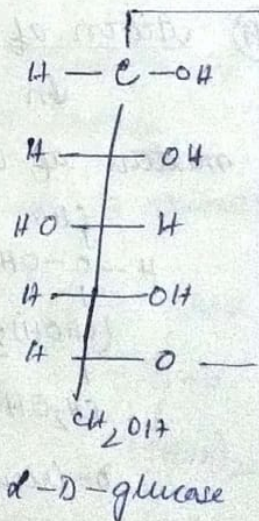 H — C — OH
H OH
HO H
H OH
H O
CH2OH
α-D-glucose